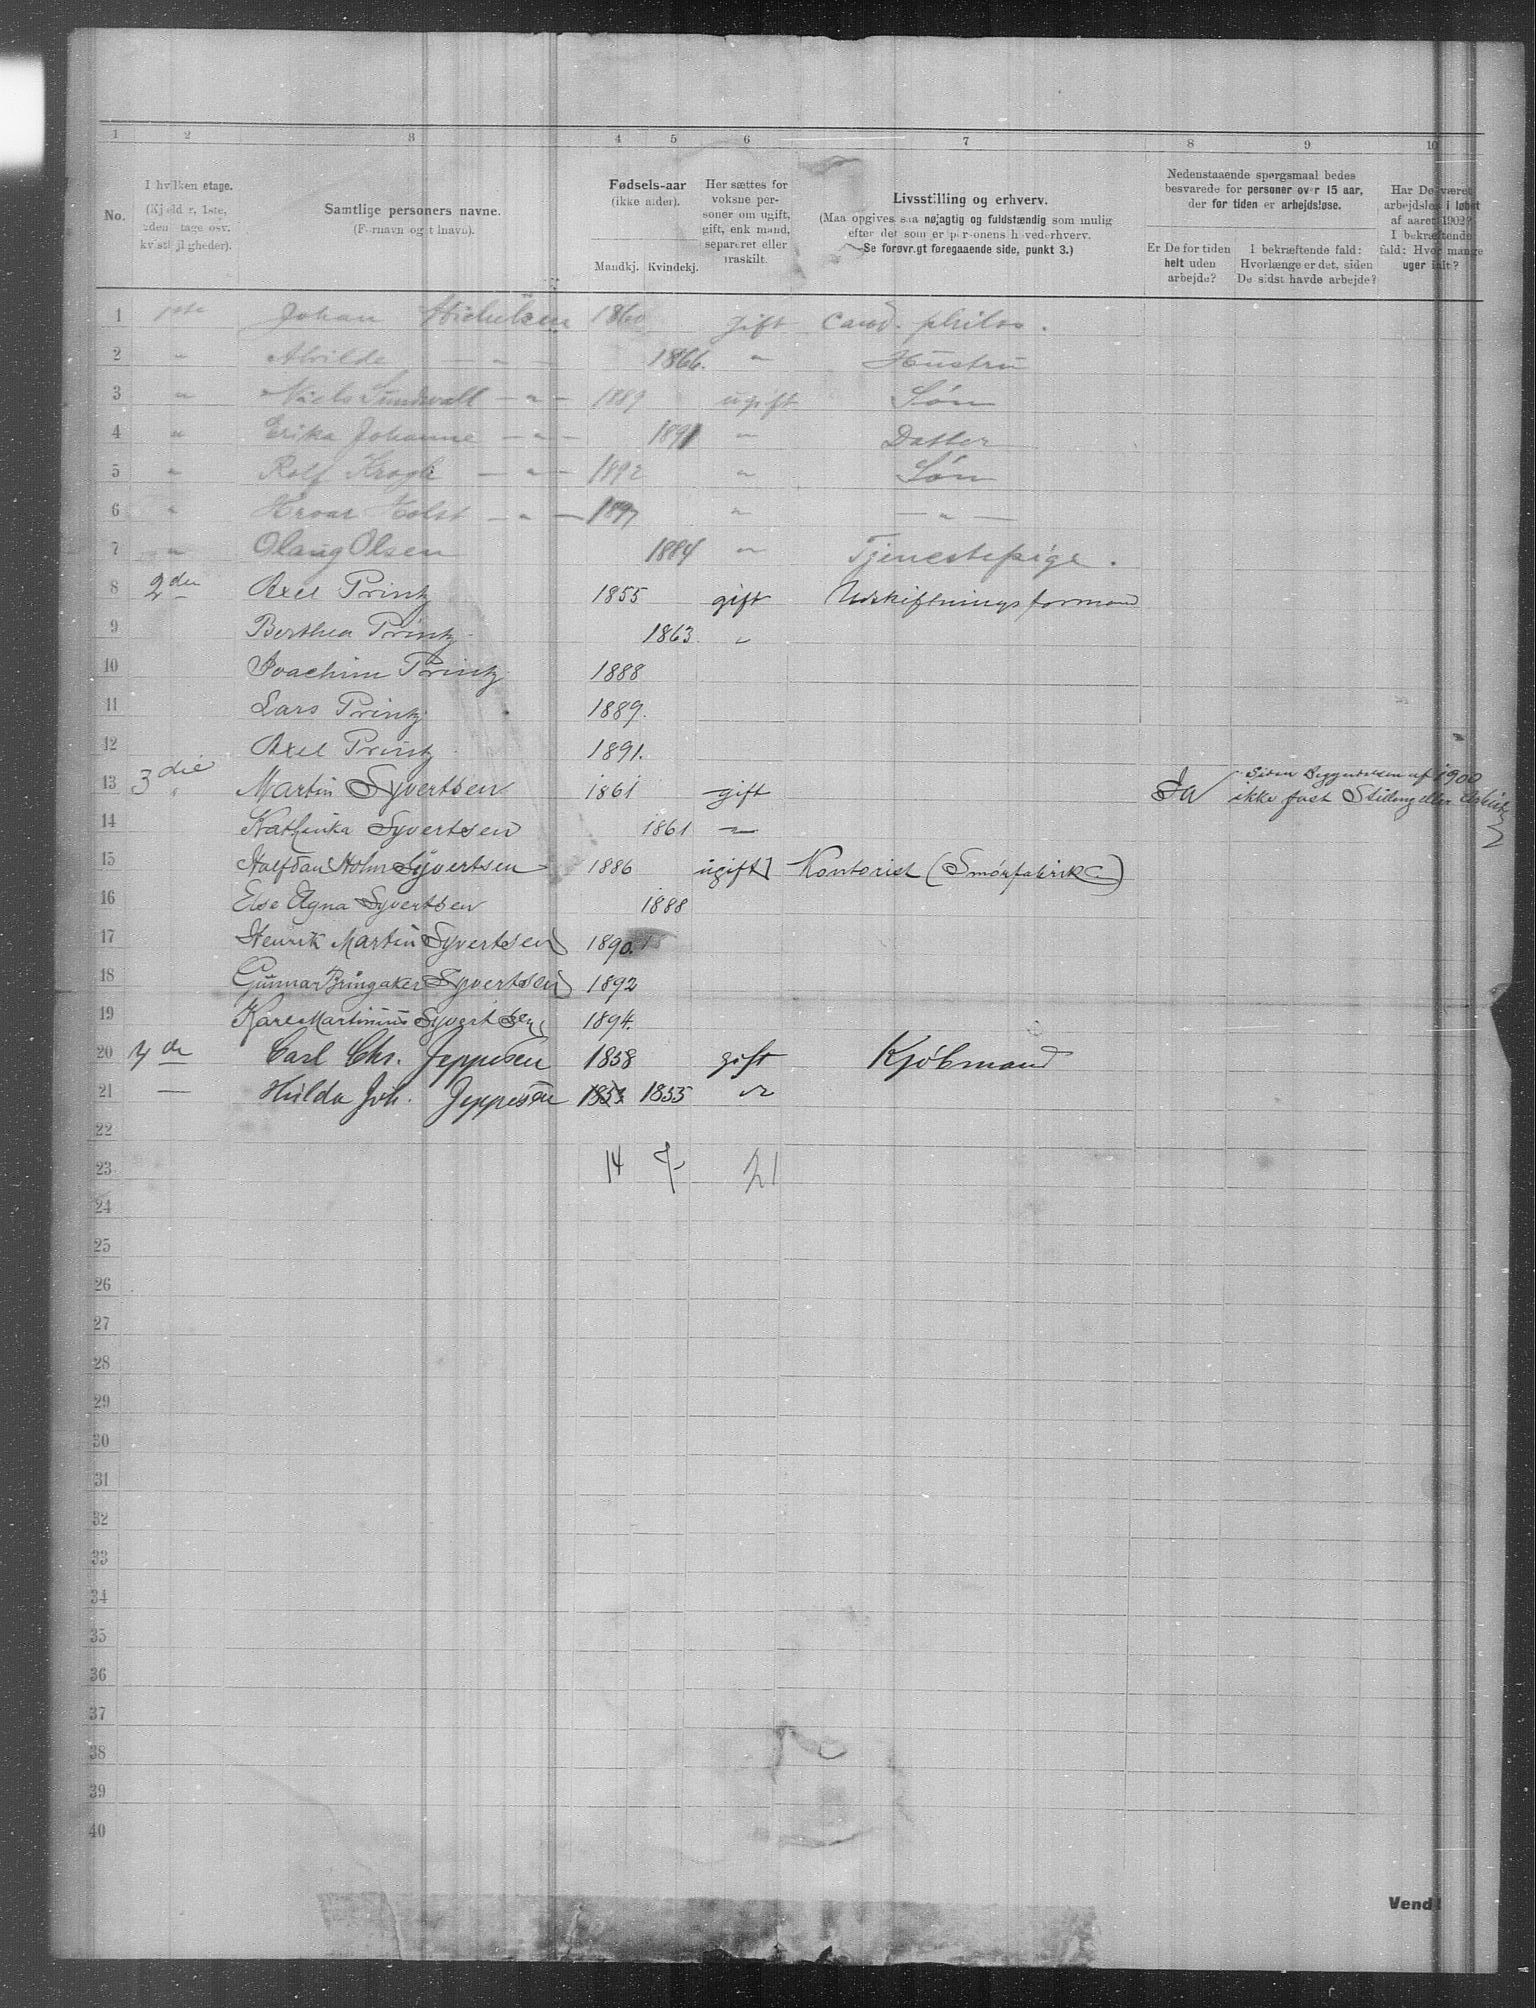 1 2 3 4 5 6 7 8 9 10
No.
I hvilken etage.
(Kjelder, 1ste,
2den etage osv.
kvistlejligheder).
Samtlige personers navne.
(Fornavn og tilnavn).
Fødsels-aar
(ikke alder).
Mandkj. Kvindekj.
Her sættes for
voksne per-
soner om ugift,
gift, enkemand,
separeret eller
fraskilt.
Livsstilling og erhverv.
(Maa opgives saa nøjagtig og fuldstændig som mulig
efter det som er personens hovederhverv.
Se forøvrigt foregaaende side, punkt 3.)
Nedenstaaende spørgsmaal bedes
besvarede for personer over 15 aar,
der for tiden er arbejdsløse.
Er De for tiden
helt uden
arbejde?
I bekræftende fald:
Hvorlænge er det, siden
De sidst havde arbejde?
Har De været
arbejdsløs i løbet
af aaret 1902?
I bekræftende
fald: Hvor mange
uger ialt?
1 1ste Johan Michelsen 1860 gift cand. philos.
2 " Alvilde — " — 1866. " Hustru
3 " Niels Sundvall — " — 1889 ugift Søn
4 " Erika Johanne — " — 1891 " Datter
5 " Rolf Krogh — " — 1892 " Søn
6 " Hroar Holst — " — 1897 " — " —
7 " Olaug Olsen 1884 " Tjenestepige.
8 2den Axel Printz 1855 gift Udskiftningsformand
9 Berthea Printz 1863 "
10 Joachim Printz 1888
11 Lars Printz 1889.
12 Axel Printz 1891.
13 3die Martin Syvertsen 1861 gift Ja Siden Begyndelsen af 1900
ikke fast Stilling eller Arbeide
14 Kathinka Syvertsen 1861 "
15 Halfdan Holm Syvertsen 1886 ugift Kontorist (Smørfabrik)
16 Else Agna Syvertsen 1888
17 Henrik Martin Syvertsen 1890.
18 Gunnar Bringaker Syvertsen 1892
19 Kare Martinius Syvertsen 1894.
20 4de Carl Chr. Jeppesen 1858 gift Kjøbmand
21 — Hilda Joh. Jeppesen 1853 1853 "
22
23 14 7 21
24
25
26
27
28
29
30
31
32
33
34
35
36
37
38
39
40
Vend!